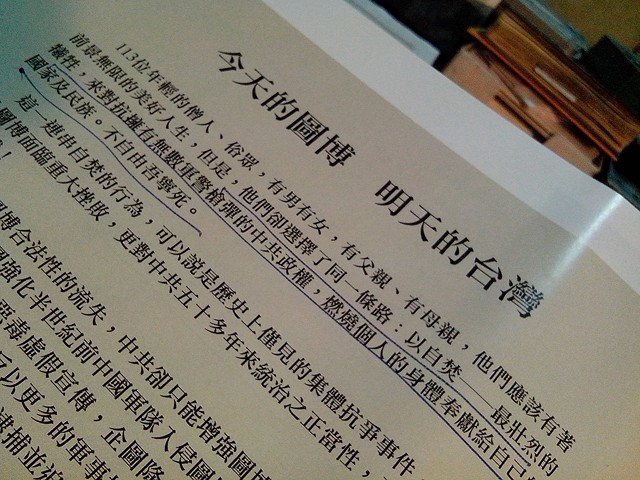 今天的圖博　明天的台灣
113位年輕的僧人、俗眾，有男有女，有父親、有母親，他們應該有著
前景無限的美好人生，但是，他們卻選擇了同一條路：以自焚——最壯烈的
犧牲，來對抗擁有無數軍警槍彈的中共政權，燃燒個人的身體奉獻給自己
國家及民族。不自由吾寧死。
這一連串自焚的行為，可以說是歷史上僅見的集體抗爭事件
圖博面臨重大挫敗，更對中共五十多年來統治之正當性，
！
博合法性的流失，中共卻只能增強圖博
強化半世紀前中國軍隊入侵圖
惡毒虛假宣傳，企圖降
以更多的軍事
逮捕並